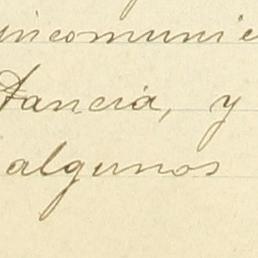 incomunic
tancia, y
algunos